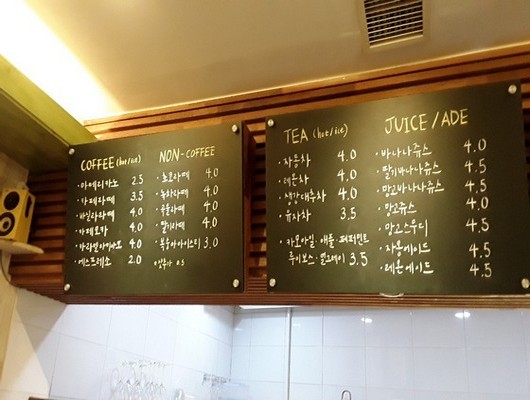 COFFEE (hot/ice)
아메리카노 2.5
카페라떼 3.5
바닐라라떼 4.0
카페모카 4.0
카라멜마키아또 4.0
에스프레소 2.0
NON-COFFEE
초코라떼 4.0
녹차라떼 4.0
곡물라떼 4.0
딸기라떼 4.0
복숭아아이스티 3.0
0.5
TEA (hot/ice)
자몽차 4.0
레몬차 4.0
생강대추차 4.0
유자차 3.5
카모마일·애플·페퍼민트
루이보스·얼그레이 3.5
JUICE / ADE
바나나쥬스 4.0
딸기바나나쥬스 4.5
망고바나나쥬스 4.5
망고쥬스 4.0
망고스무디 4.5
자몽에이드 4.5
레몬에이드 4.5